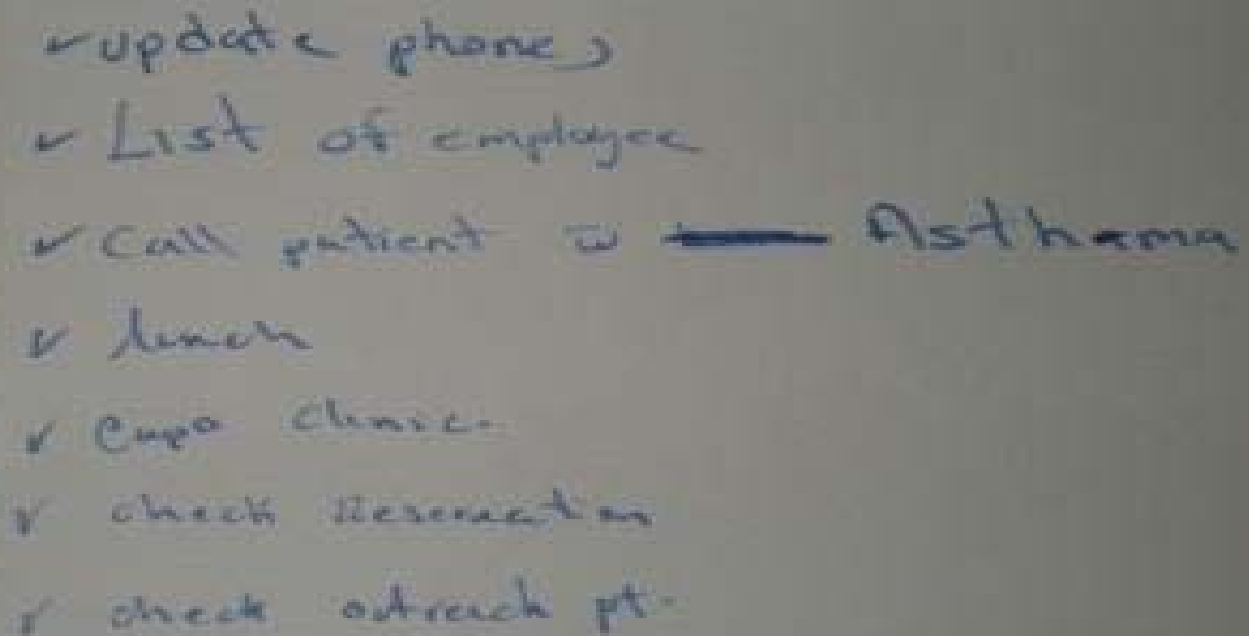 ✓ update phones
✓ List of employee
✓ Call patient w̄ Asthama
✓ lunch
✓ Clinic.
✓ check Reservation
✓ check outreach pt.